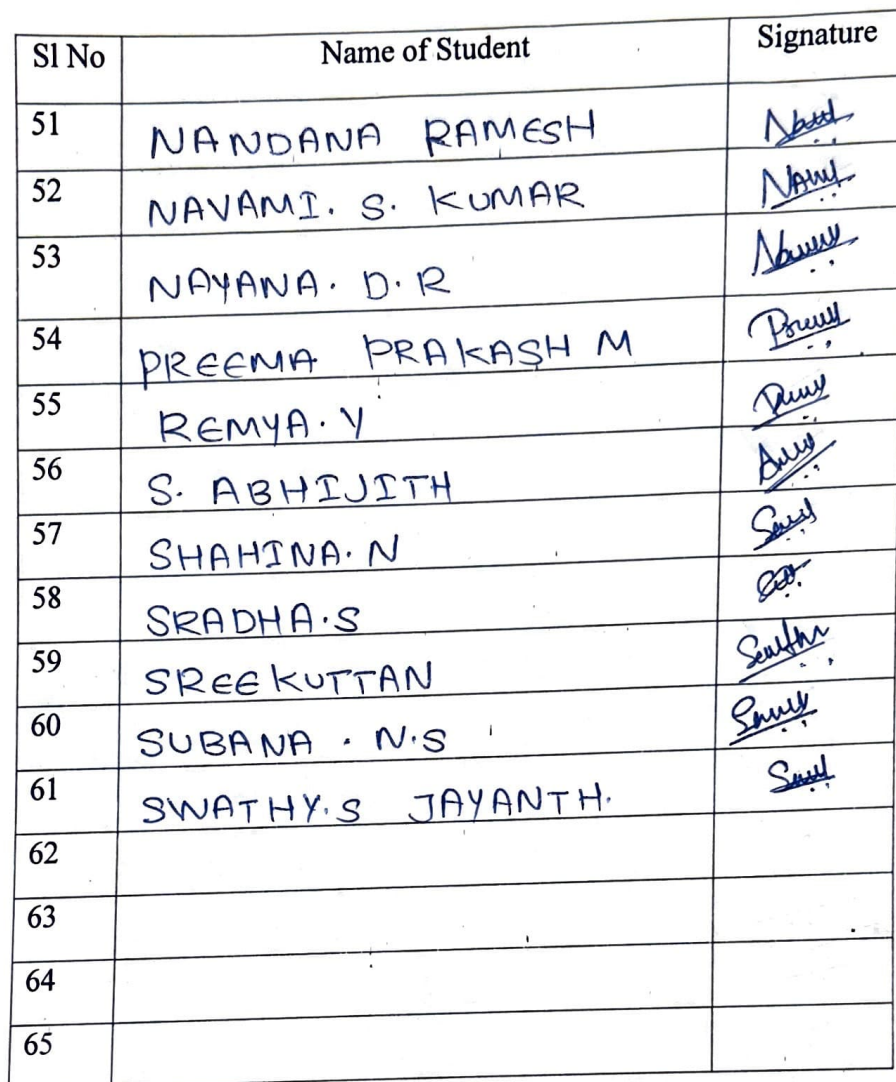 Sl No Name of Student Signature
51 NANDANA RAMESH
52 NAVAMI. S. KUMAR
53 NAYANA. D. R
54 PREEMA PRAKASH M
55 REMYA. Y
56 S. ABHIJITH
57 SHAHINA. N
58 SRADHA.S
59 SREEKUTTAN
60 SUBANA . N.S
61 SWATHY.S JAYANTH.
62
63
64
65